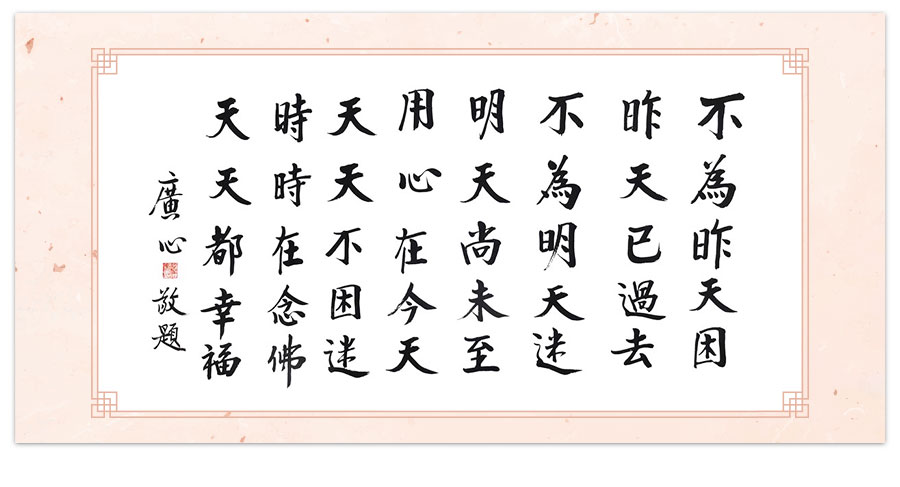 不為昨天困
昨天已過去
不為明天迷
明天尚未至
用心在今天
天天不困迷
時時在念佛
天天都幸福
廣心敬題